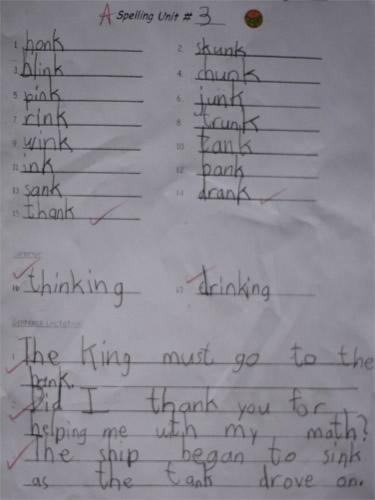 A Spelling Unit # 3
1. honk
2. skunk
3. blink
4. chunk
5. pink
6. junk
7. rink
8. trunk
9. wink
10. tank
11. ink
12. bank
13. sank
14. drank
15. thank
16. thinking
17. drinking
Sentence Dictation
1. The King must go to the
bank.
Did I thank you for
helping me with my math?
The ship began to sink
as the tank drove on.